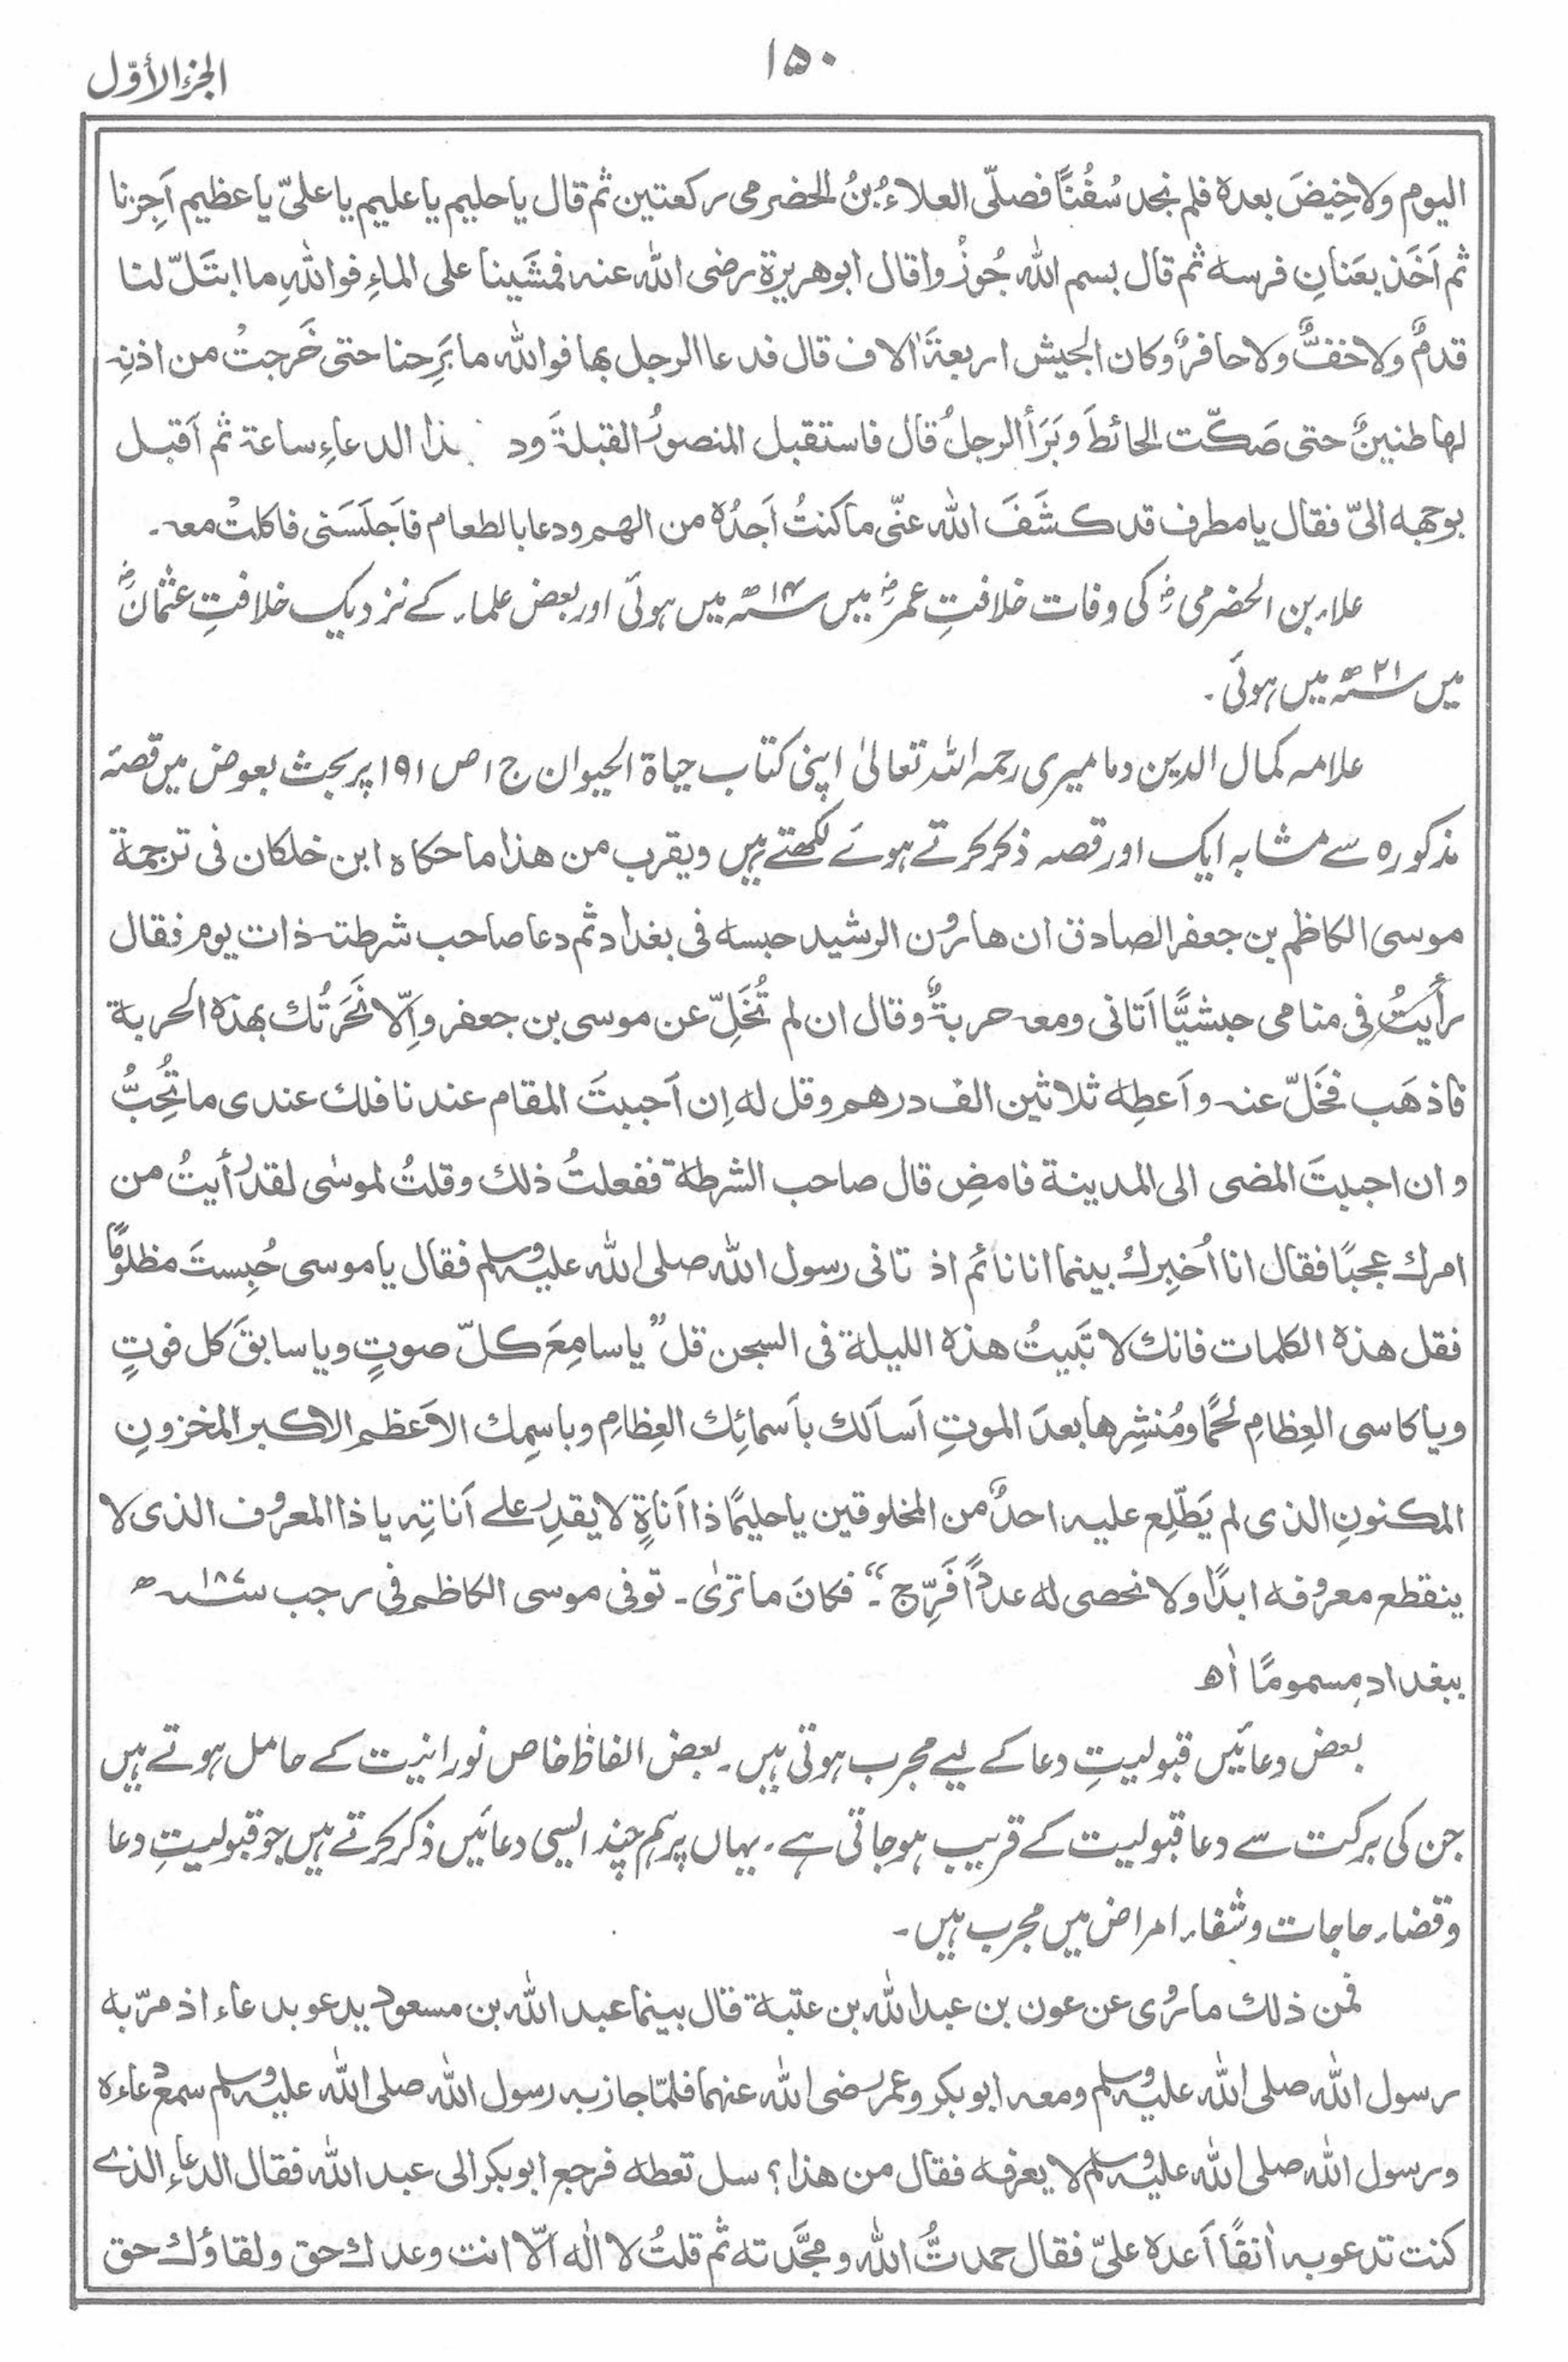 ۱۵۰
الجزء الأوّل
اليوم ولا خِيضَ بعده فلم نجد سُفُنًا فصلّى العلاءُ بنُ الحضرمى ركعتين ثم قال يا حليم يا عليم يا علىّ يا عظيم اَجِزنا
ثم اَخَذ بعَنانِ فرسه ثم قال بسم الله جُوزُوا قال ابو هريرة رضى الله عنه فمشَينا على الماءِ فواللهِ ما ابتَلّ لنا
قدمٌ ولا خفٌّ ولا حافرٌ وكان الجيش اربعةَ اٰلاف قال فدعا الرجل بها فوالله ما بَرِحنا حتى خَرجتْ من اذنِه
لها طنينٌ حتى صَكّت الحائطَ وبَرَأ الرجلُ قال فاستقبل المنصورُ القبلةَ ود ذا الدعاءِ ساعة ثم اَقبل
بوجهه الىّ فقال يا مطرف قد كشَفَ الله عنّى ما كنتُ اَجدُه من الهم ودعا بالطعام فاَجلَسَنى فاكلتُ معه۔
علاء بن الحضرمیؓ کی وفات خلافتِ عمرؓ میں ۱۴ھ سنہ میں ہوئی اور بعض علماء کے نزدیک خلافتِ عثمانؓ
میں ۲۱ھ سنہ میں ہوئی۔
علامہ کمال الدین دمامیری رحمہ اللہ تعالیٰ اپنی کتاب حیاۃ الحیوان ج ۱ ص ۱۹۱ پر بحث بعوض میں قصۂ
مذکورہ سے مشابہ ایک اور قصہ ذکر کرتے ہوئے لکھتے ہیں ويقرب من هذا ما حكاه ابن خلكان فى ترجمة
موسى الكاظم بن جعفر الصادق ان هارون الرشيد حبسه فى بغداد ثم دعا صاحب شرطته ذات يوم فقال
رأيتُ فى منامى حبشيًّا اَتانى ومعه حربةٌ وقال ان لم تُخَلِّ عن موسى بن جعفر واِلّا نَحَرتُك بهذه الحربة
فاذهَب فخَلّ عنه واَعطِه ثلاثين الف درهم وقل له اِن اَحببتَ المقام عندنا فلك عندى ما تُحِبُّ
وان احببتَ المضى الى المدينة فامضِ قال صاحب الشرطة ففعلتُ ذلك وقلتُ لموسٰى لقد رأيتُ من
امرك عجبًا فقال انا اُخبِرك بينما انا نائم اذ تانى رسول الله صلى الله عليه وسلم فقال يا موسى حُبِستَ مظلومًا
فقل هذه الكلمات فانك لا تَبيتُ هذه الليلة فى السجن قل ”يا سامِعَ كلّ صوتٍ ويا سابقَ كل فوتٍ
ويا كاسى العِظامِ لحمًا ومُنشِرها بعدَ الموتِ اَسألك بأسمائِك العِظامِ وباسمِك الاَعظم الاكبر المخزونِ
المكنونِ الذى لم يَطّلِع عليه احدٌ من المخلوقين يا حليمًا ذا اَناةٍ لا يقدِرُ على اَناتِه يا ذا المعروف الذى لا
ينقطع معروفه ابدًا ولا نحصى له عددًا فَرِّج۔“ فكانَ ما ترٰى۔ توفى موسى الكاظم فى رجب سنہ ۱۸۷ھ
ببغداد مسمومًا اٰھ
بعض دعائیں قبولیتِ دعا کے لیے مجرب ہوتی ہیں۔ بعض الفاظ خاص نورانیت کے حامل ہوتے ہیں
جن کی برکت سے دعا قبولیت کے قریب ہوجاتی ہے۔ یہاں پر ہم چند ایسی دعائیں ذکر کرتے ہیں جو قبولیتِ دعا
وقضاء حاجات وشفاء امراض میں مجرب ہیں۔
فمن ذلك ما رُوى عن عون بن عبد الله بن عتبة قال بينما عبد الله بن مسعود يدعو بدعاء اذ مرّ به
رسول الله صلى الله عليه وسلم ومعه ابو بكر وعمر رضى الله عنهما فلمّا جاز به رسول الله صلى الله عليه وسلم سمع دعاءه
ورسول الله صلى الله عليه وسلم لا يعرفه فقال من هذا؟ سل تعطه فرجع ابو بكر الى عبد الله فقال الدعاء الذى
كنت تدعو به اٰنفًا اَعده علىّ فقال حمدتُّ الله ومجَّدته ثم قلتُ لا اله الّا انت وعدك حق ولقاؤك حق